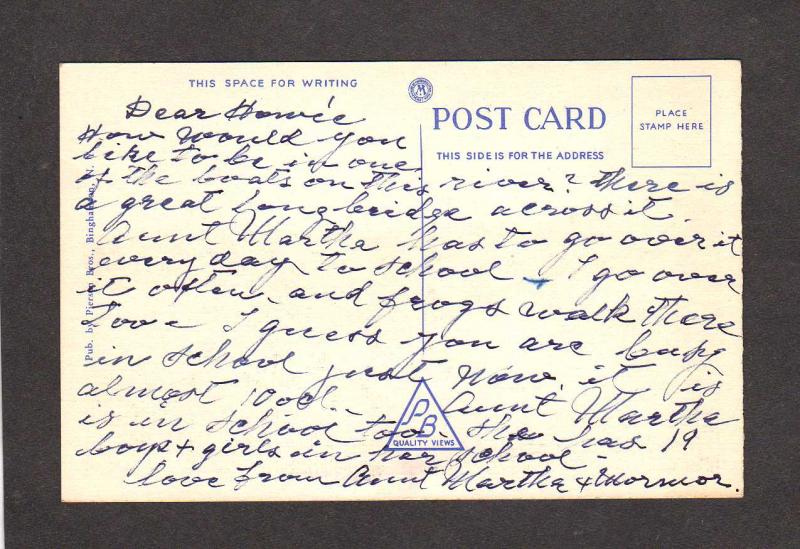 THIS SPACE FOR WRITING
POST CARD
PLACE
STAMP HERE
THIS SIDE IS FOR THE ADDRESS
Dear Howie
How would you
like to be in one
of the boats on this river? There is
a great long bridge across it.
Aunt Martha has to go over it
every day to school - I go over
it often and frogs walk there
too - I guess you are busy
in school just now, it is
almost 10 ocl. - Aunt Martha
is in school too. She has 19
boys + girls in her school -
love from Aunt Martha +
Pub. by Pierson Bros., Binghamton, N.
PB
QUALITY VIEWS